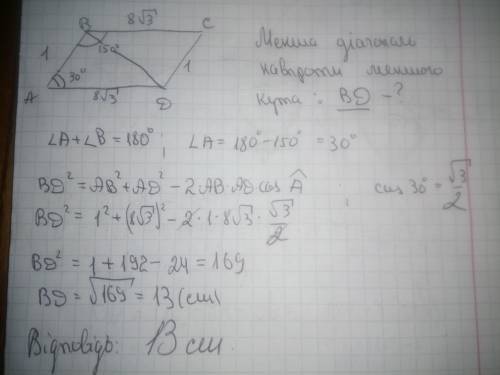 B 8√3 C
1 150° Менша діагональ
30° 1 навпроти меншого
A 8√3 D кута: BD - ?
∠A+∠B=180°; ∠A=180°-150°=30°
BD²=AB²+AD²-2AB·AD cos Â; cos 30°=√3/2
BD²=1²+(8√3)²-2·1·8√3·√3/2
BD²=1+192-24=169
BD=√169=13(см)
Відповідь: 13 см.